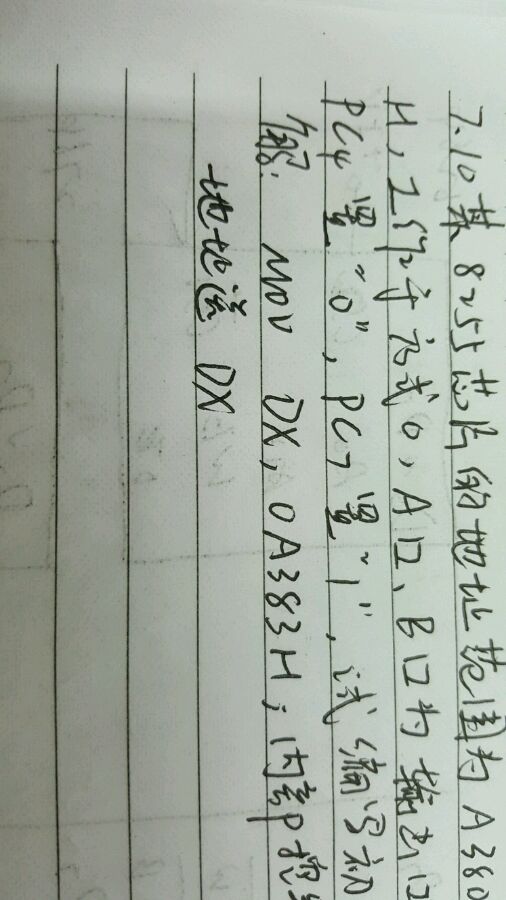 7.10某8255芯片的地址范围为A380
H,工作于方式0,A口、B口为输出口
PC4置“0”,PC7置“1”,试编写初
解: MOV DX, 0A383H;内部控
地址送DX